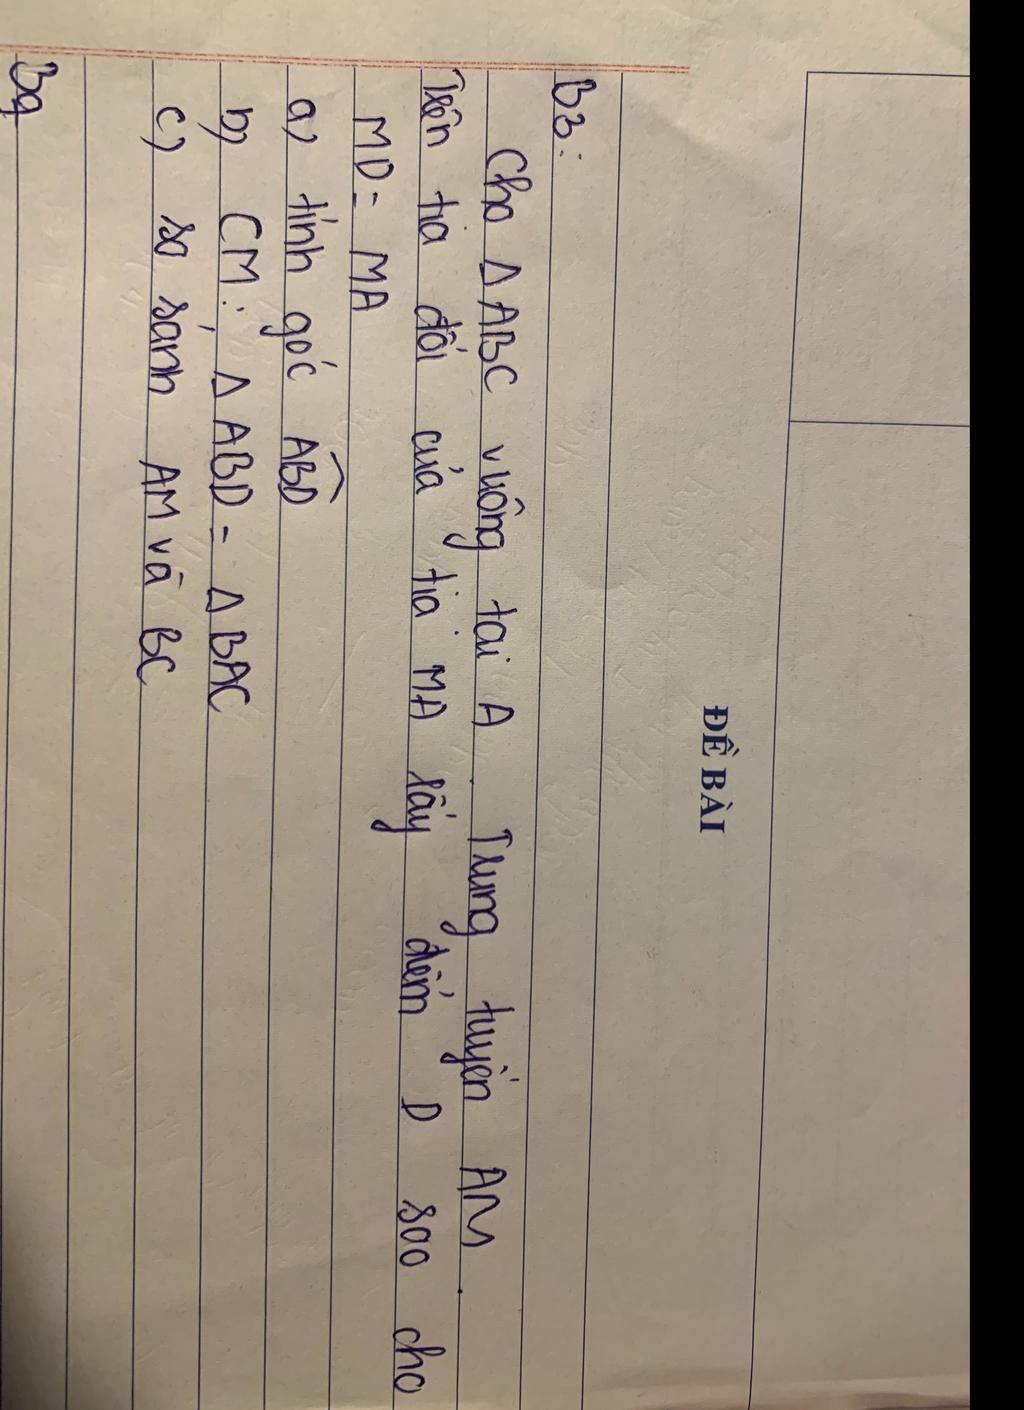 ĐỀ BÀI
B3:
Cho Δ ABC vuông tại A. Trung tuyến AM.
Trên tia đối của tia MA lấy điểm D sao cho
MD = MA
a) tính góc ABD
b) CM: Δ ABD = Δ BAC
c) so sánh AM và BC
Bg